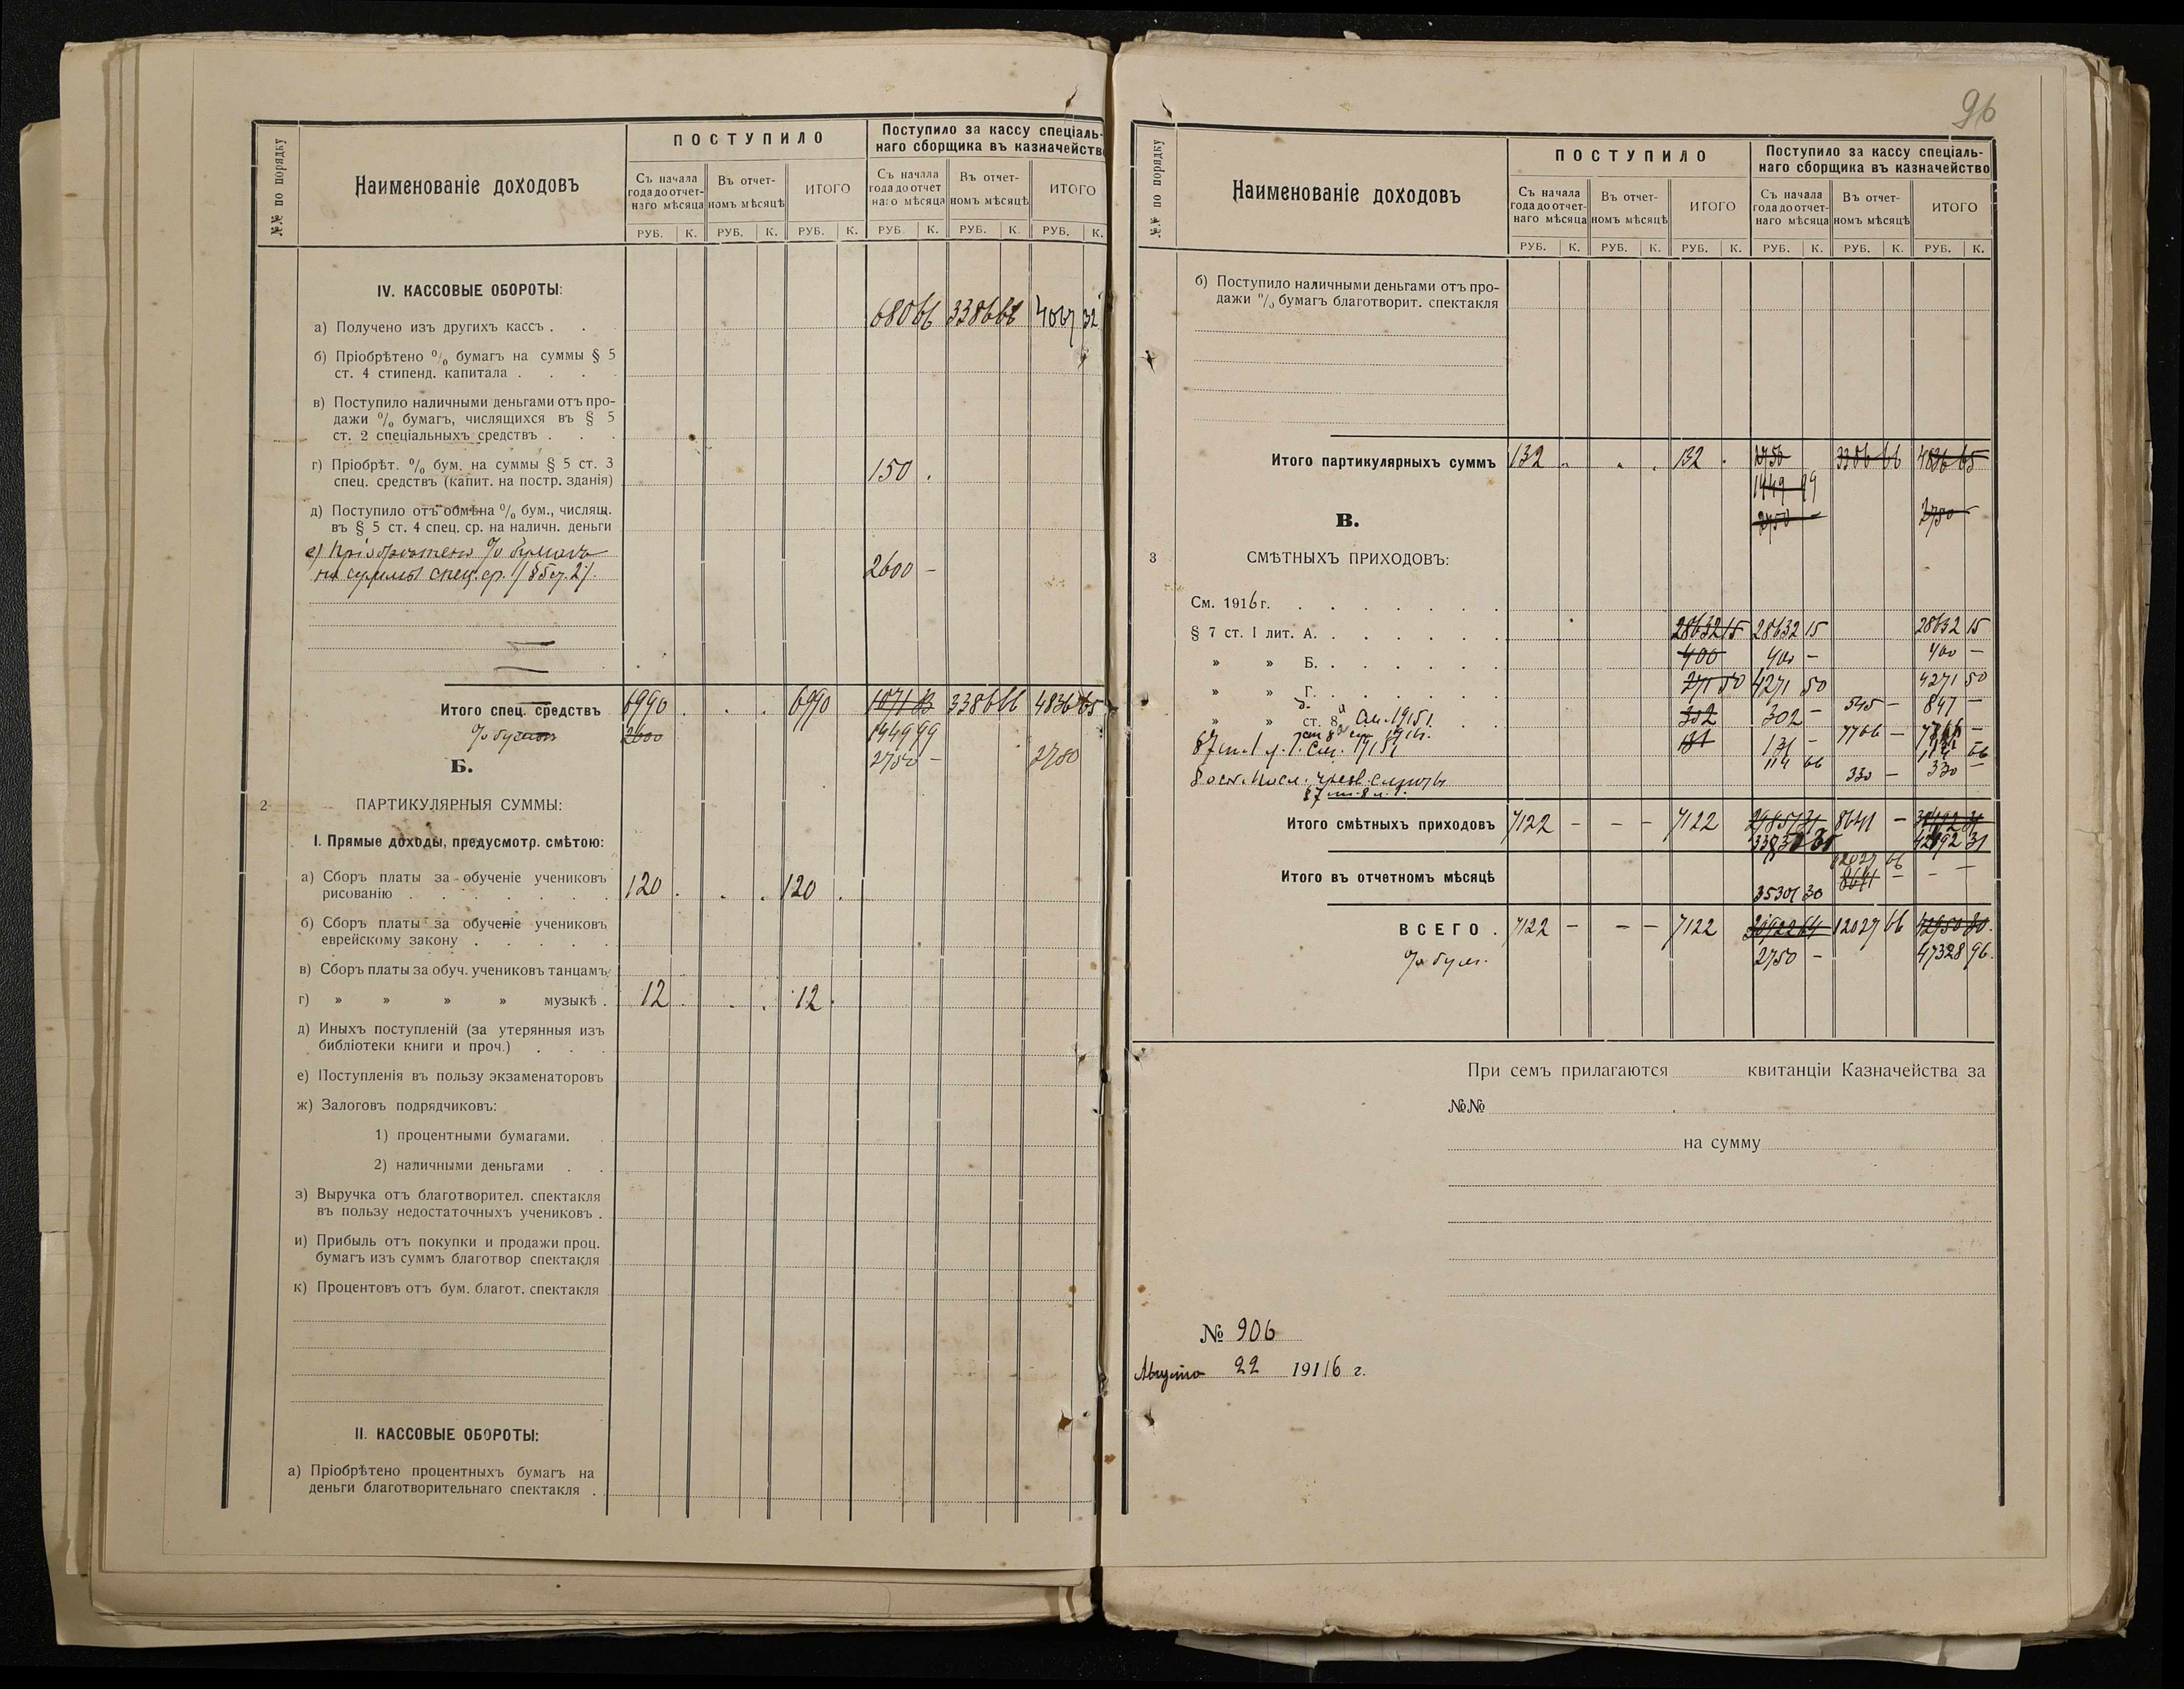 №№ по порядку
Наименованіе доходовъ
ПОСТУПИЛО
Поступило за кассу спеціаль-
наго сборщика въ казначейство
Съ начала
года до отчет-
наго мѣсяца
Въ отчет-
номъ мѣсяцѣ
ИТОГО
Съ начала
года до отчет
наго мѣсяца
Въ отчет-
номъ мѣсяцѣ
ИТОГО
РУБ. К. РУБ. К. РУБ. К. РУБ. К. РУБ. К. РУБ. К.
IV. КАССОВЫЕ ОБОРОТЫ:
а) Получено изъ другихъ кассъ . . 680 66 3386 66 4067 32
б) Пріобрѣтено % бумагъ на суммы § 5
ст. 4 стипенд. капитала . . . .
в) Поступило наличными деньгами отъ про-
дажи % бумагъ, числящихся въ § 5
ст. 2 спеціальныхъ средствъ . . .
г) Пріобрѣт. % бум. на суммы § 5 ст. 3
спец. средствъ (капит. на постр. зданія) 150 .
д) Поступило отъ обмѣна % бум., числящ.
въ § 5 ст. 4 спец. ср. на наличн. деньги
е) Пріобрѣтено % бумагъ
на суммы спец. ср. (§ 5 ст. 2). 2600 -
Итого спец. средствъ 6990 . . . 6990 1071 3386 66 4836 65
% бумагъ 2600 1449 99
2750 - 2750
Б.
2 ПАРТИКУЛЯРНЫЯ СУММЫ:
I. Прямые доходы, предусмотр. смѣтою:
а) Сборъ платы за обученіе учениковъ
рисованію . . . . . . . 120 . . . 120 .
б) Сборъ платы за обученіе учениковъ
еврейскому закону . . . . .
в) Сборъ платы за обуч. учениковъ танцамъ
г) » » » » музыкѣ . 12 . . . 12 .
д) Иныхъ поступленій (за утерянныя изъ
библіотеки книги и проч.) . . .
е) Поступленія въ пользу экзаменаторовъ
ж) Залоговъ подрядчиковъ:
1) процентными бумагами. .
2) наличными деньгами . .
з) Выручка отъ благотворител. спектакля
въ пользу недостаточныхъ учениковъ .
и) Прибыль отъ покупки и продажи проц.
бумагъ изъ суммъ благотвор спектакля
к) Процентовъ отъ бум. благот. спектакля
II. КАССОВЫЕ ОБОРОТЫ:
а) Пріобрѣтено процентныхъ бумагъ на
деньги благотворительнаго спектакля .
96
№№ по порядку
Наименованіе доходовъ
ПОСТУПИЛО
Поступило за кассу спеціаль-
наго сборщика въ казначейство
Съ начала
года до отчет-
наго мѣсяца
Въ отчет-
номъ мѣсяцѣ
ИТОГО
Съ начала
года до отчет-
наго мѣсяца
Въ отчет-
номъ мѣсяцѣ
ИТОГО
РУБ. К. РУБ. К. РУБ. К. РУБ. К. РУБ. К. РУБ. К.
б) Поступило наличными деньгами отъ про-
дажи % бумагъ благотворит. спектакля
Итого партикулярныхъ суммъ 132 . . . 132 . 2750 3386 66 4836 65
1449 99
2750 - 2750 -
В.
3 СМѢТНЫХЪ ПРИХОДОВЪ:
См. 1916 г. . . . . . . .
§ 7 ст. I лит. А. . . . . . . 28632 15 28632 15 28632 15
» » Б. . . . . . . 400 400 - 400 -
» » Г. . . . . . . 271 50 4271 50 4271 50
» » ст. 8 См. 1915 г. . . 302 302 - 545 - 847 -
§ 7 ст. 1 л. См. 1915 131 131 - 7766 -
114 66
330 - 330 -
Итого смѣтныхъ приходовъ 7122 - - - 7122 8641 -
42492 31
Итого въ отчетномъ мѣсяцѣ 12027 66
8641 - - -
35301 30
ВСЕГО . 7122 - - - 7122 12027 66 42950 30.
% бум. 2750 - 47328 96.
При семъ прилагаются квитанціи Казначейства за
№№
на сумму
№ 906
Августа 22 1916 г.